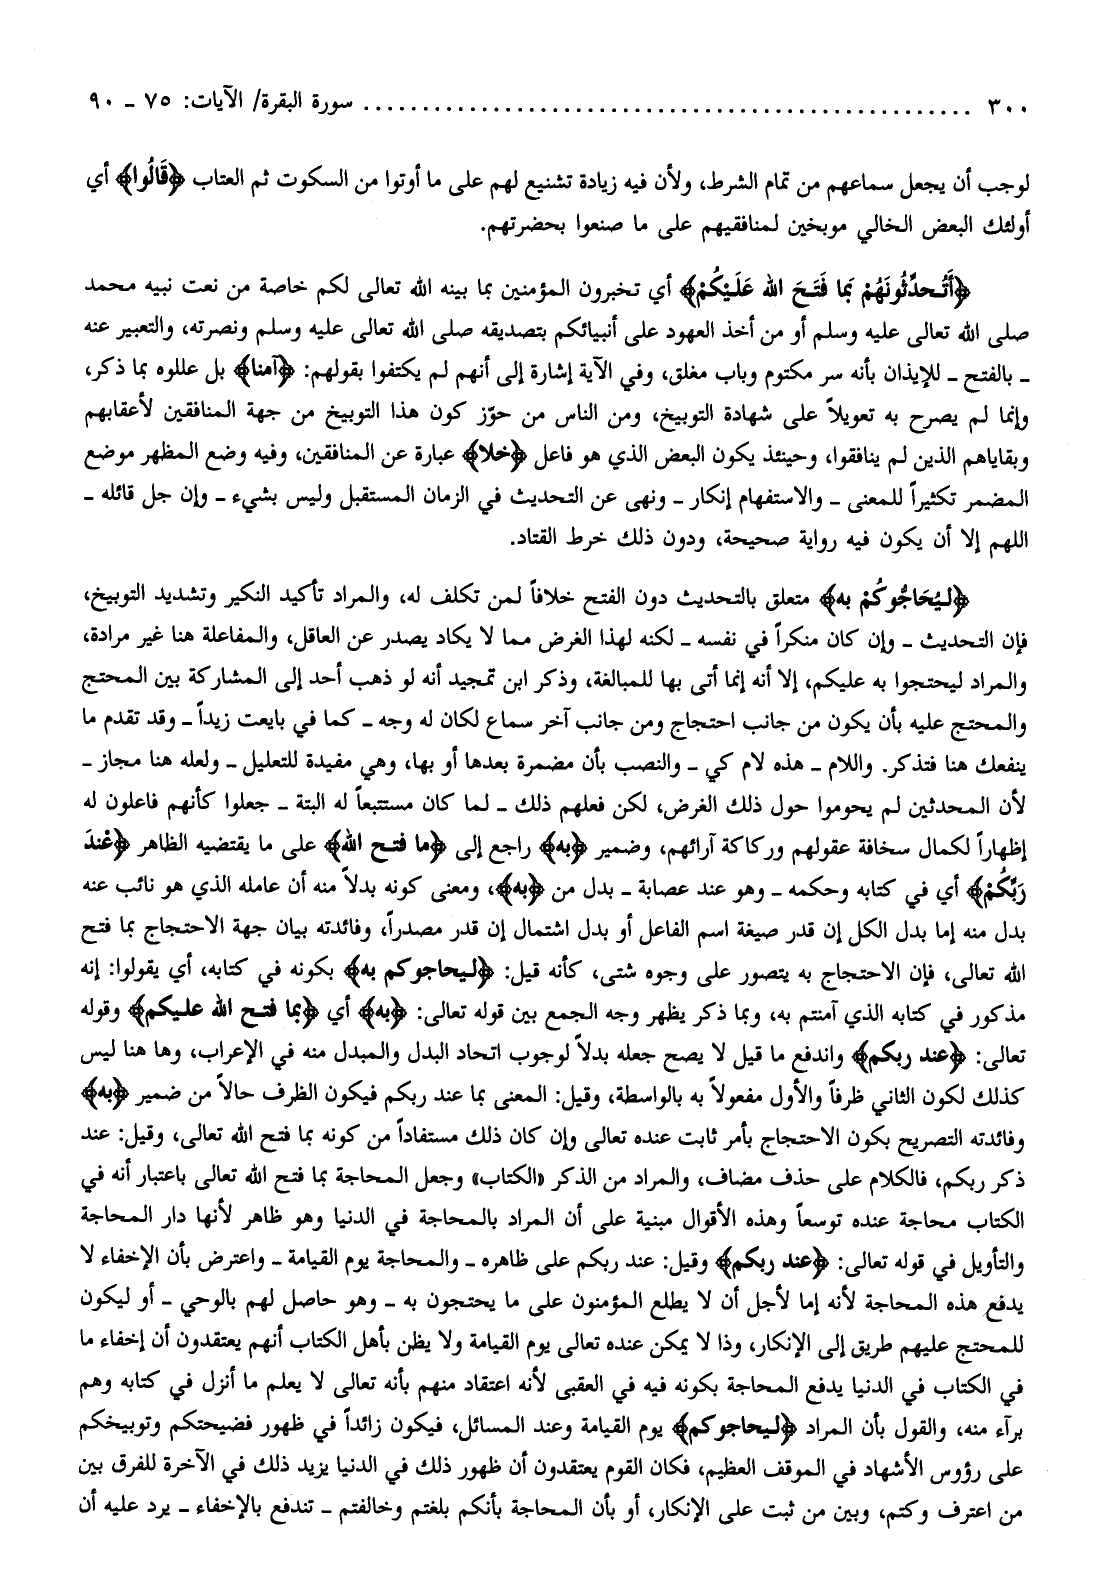 ٣٠٠ ........................................................ سورة البقرة/ الآيات: ٧٥ ـ ٩٠
لوجب أن يجعل سماعهم من تمام الشرط، ولأن فيه زيادة تشنيع لهم على ما أوتوا من السكوت ثم العتاب ﴿قَالُوا﴾ أي
أولئك البعض الخالي موبخين لمنافقيهم على ما صنعوا بحضرتهم.
﴿أَتُحدِّثُونَهُمْ بمَا فَتَحَ الله عَلَيْكُمْ﴾ أي تخبرون المؤمنين بما بينه الله تعالى لكم خاصة من نعت نبيه محمد
صلى الله تعالى عليه وسلم أو من أخذ العهود على أنبيائكم بتصديقه صلى الله تعالى عليه وسلم ونصرته، والتعبير عنه
ـ بالفتح ـ للإيذان بأنه سر مكتوم وباب مغلق، وفي الآية إشارة إلى أنهم لم يكتفوا بقولهم: ﴿آمنا﴾ بل عللوه بما ذكر،
وإنما لم يصرح به تعويلاً على شهادة التوبيخ، ومن الناس من حوّز كون هذا التوبيخ من جهة المنافقين لأعقابهم
وبقاياهم الذين لم ينافقوا، وحينئذ يكون البعض الذي هو فاعل ﴿خلا﴾ عبارة عن المنافقين، وفيه وضع المظهر موضع
المضمر تكثيراً للمعنى ـ والاستفهام إنكار ـ ونهى عن التحديث في الزمان المستقبل وليس بشيء ـ وإن جل قائله ـ
اللهم إلا أن يكون فيه رواية صحيحة، ودون ذلك خرط القتاد.
﴿ليُحَاجُّوكُمْ به﴾ متعلق بالتحديث دون الفتح خلافاً لمن تكلف له، والمراد تأكيد النكير وتشديد التوبيخ،
فإن التحديث ـ وإن كان منكراً في نفسه ـ لكنه لهذا الغرض مما لا يكاد يصدر عن العاقل، والمفاعلة هنا غير مرادة،
والمراد ليحتجوا به عليكم، إلا أنه إنما أتى بها للمبالغة، وذكر ابن تمجيد أنه لو ذهب أحد إلى المشاركة بين المحتج
والمحتج عليه بأن يكون من جانب احتجاج ومن جانب آخر سماع لكان له وجه ـ كما في بايعت زيداً ـ وقد تقدم ما
ينفعك هنا فتذكر. واللام ـ هذه لام كي ـ والنصب بأن مضمرة بعدها أو بها، وهي مفيدة للتعليل ـ ولعله هنا مجاز ـ
لأن المحدثين لم يحوموا حول ذلك الغرض، لكن فعلهم ذلك ـ لما كان مستتبعاً له البتة ـ جعلوا كأنهم فاعلون له
إظهاراً لكمال سخافة عقولهم وركاكة آرائهم، وضمير ﴿به﴾ راجع إلى ﴿ما فتح الله﴾ على ما يقتضيه الظاهر ﴿عْندَ
رَبِّكُمْ﴾ أي في كتابه وحكمه ـ وهو عند عصابة ـ بدل من ﴿به﴾، ومعنى كونه بدلاً منه أن عامله الذي هو نائب عنه
بدل منه إما بدل الكل إن قدر صيغة اسم الفاعل أو بدل اشتمال إن قدر مصدراً، وفائدته بيان جهة الاحتجاج بما فتح
الله تعالى، فإن الاحتجاج به يتصور على وجوه شتى، كأنه قيل: ﴿ليحاجوكم به﴾ بكونه في كتابه، أي يقولوا: إنه
مذكور في كتابه الذي آمنتم به، وبما ذكر يظهر وجه الجمع بين قوله تعالى: ﴿به﴾ أي ﴿بما فتح الله عليكم﴾ وقوله
تعالى: ﴿عند ربكم﴾ واندفع ما قيل لا يصح جعله بدلاً لوجوب اتحاد البدل والمبدل منه في الإعراب، وها هنا ليس
كذلك لكون الثاني ظرفاً والأول مفعولاً به بالواسطة، وقيل: المعنى بما عند ربكم فيكون الظرف حالاً من ضمير ﴿به﴾
وفائدته التصريح بكون الاحتجاج بأمر ثابت عنده تعالى وإن كان ذلك مستفاداً من كونه بما فتح الله تعالى، وقيل: عند
ذكر ربكم، فالكلام على حذف مضاف، والمراد من الذكر «الكتاب» وجعل المحاجة بما فتح الله تعالى باعتبار أنه في
الكتاب محاجة عنده توسعاً وهذه الأقوال مبنية على أن المراد بالمحاجة في الدنيا وهو ظاهر لأنها دار المحاجة
والتأويل في قوله تعالى: ﴿عند ربكم﴾ وقيل: عند ربكم على ظاهره ـ والمحاجة يوم القيامة ـ واعترض بأن الإخفاء لا
يدفع هذه المحاجة لأنه إما لأجل أن لا يطلع المؤمنون على ما يحتجون به ـ وهو حاصل لهم بالوحي ـ أو ليكون
للمحتج عليهم طريق إلى الإنكار، وذا لا يمكن عنده تعالى يوم القيامة ولا يظن بأهل الكتاب أنهم يعتقدون أن إخفاء ما
في الكتاب في الدنيا يدفع المحاجة بكونه فيه في العقبى لأنه اعتقاد منهم بأنه تعالى لا يعلم ما أنزل في كتابه وهم
برآء منه، والقول بأن المراد ﴿ليحاجوكم﴾ يوم القيامة وعند المسائل، فيكون زائداً في ظهور فضيحتكم وتوبيخكم
على رؤوس الأشهاد في الموقف العظيم، فكان القوم يعتقدون أن ظهور ذلك في الدنيا يزيد ذلك في الآخرة للفرق بين
من اعترف وكتم، وبين من ثبت على الإنكار، أو بأن المحاجة بأنكم بلغتم وخالفتم ـ تندفع بالإخفاء ـ يرد عليه أن